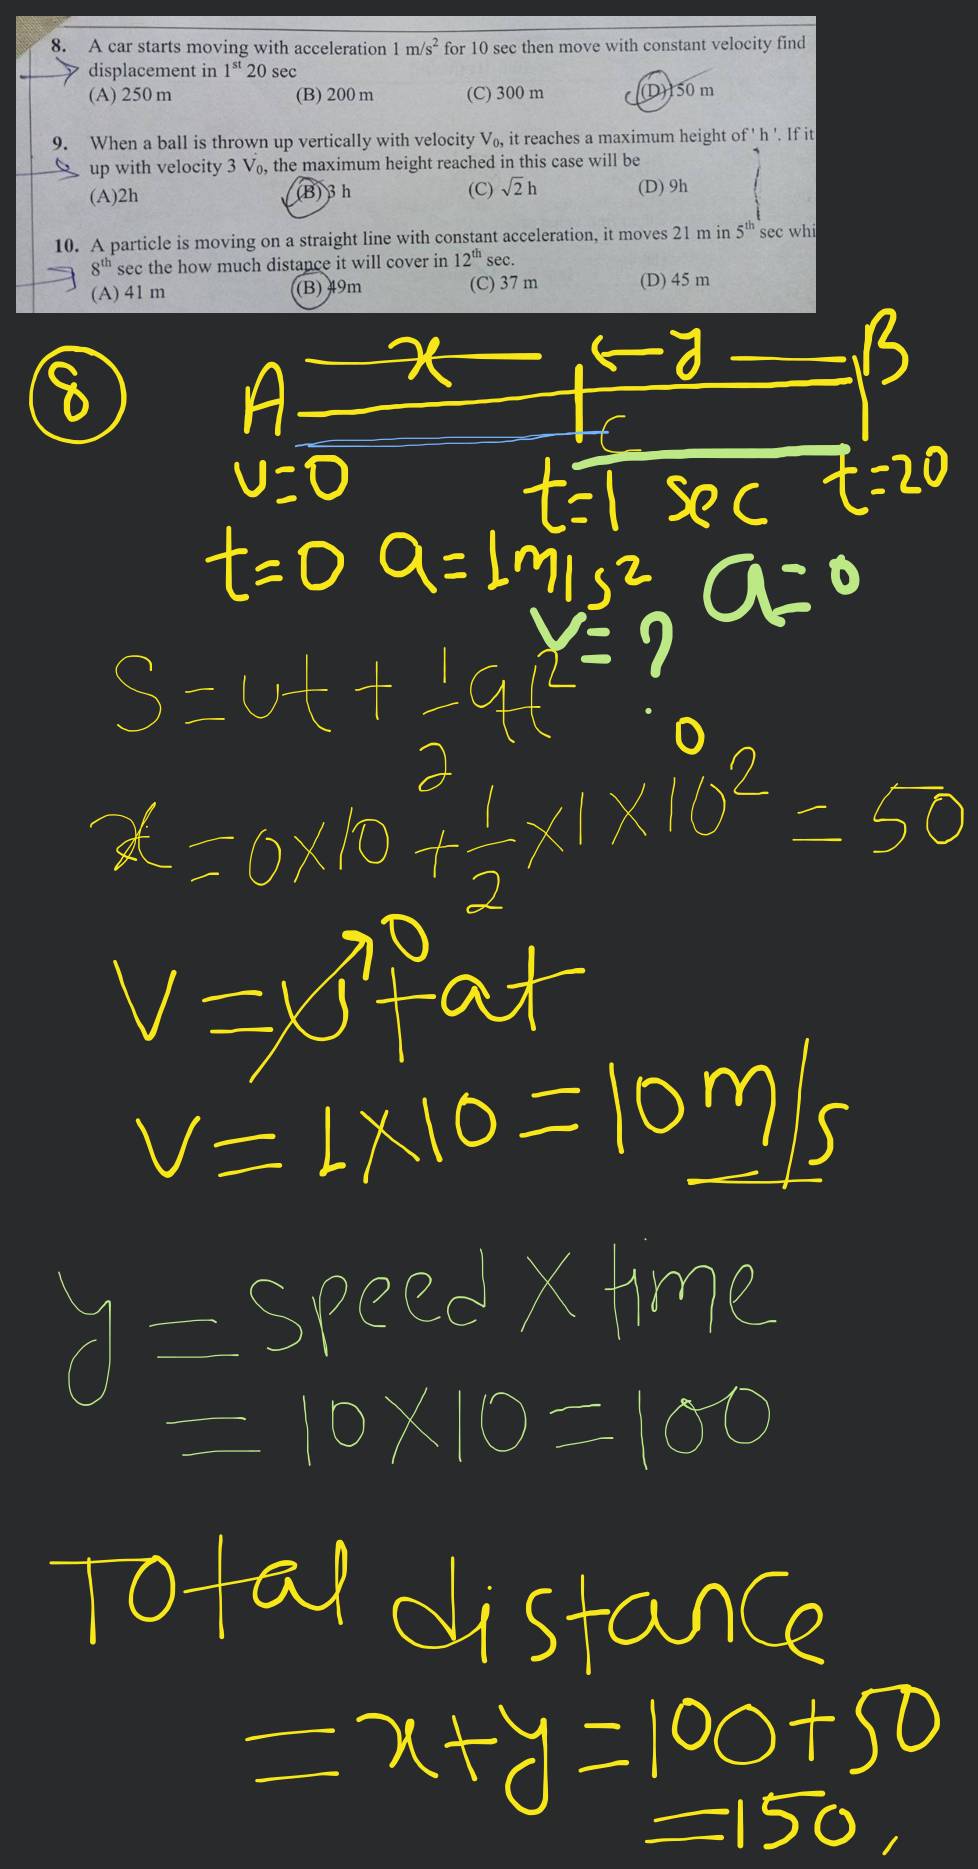 8. A car starts moving with acceleration 1 m/s² for 10 sec then move with constant velocity find
displacement in 1st 20 sec
(A) 250 m (B) 200 m (C) 300 m (D) 150 m
9. When a ball is thrown up vertically with velocity V₀, it reaches a maximum height of 'h'. If it
up with velocity 3 V₀, the maximum height reached in this case will be
(A)2h (B) 3 h (C) √2 h (D) 9h
10. A particle is moving on a straight line with constant acceleration, it moves 21 m in 5th sec whi
8th sec the how much distance it will cover in 12th sec.
(A) 41 m (B) 49m (C) 37 m (D) 45 m
8
x ← y
A B
C
u=0 t=1 sec t=20
t=0 a=1m/s² a=0
v=?
S=ut+½at²
0
x=0×10+½×1×10²=50
0
v=u+at
v=1×10=10m/s
y=speed×time
=10×10=100
Total distance
=x+y=100+50
=150,